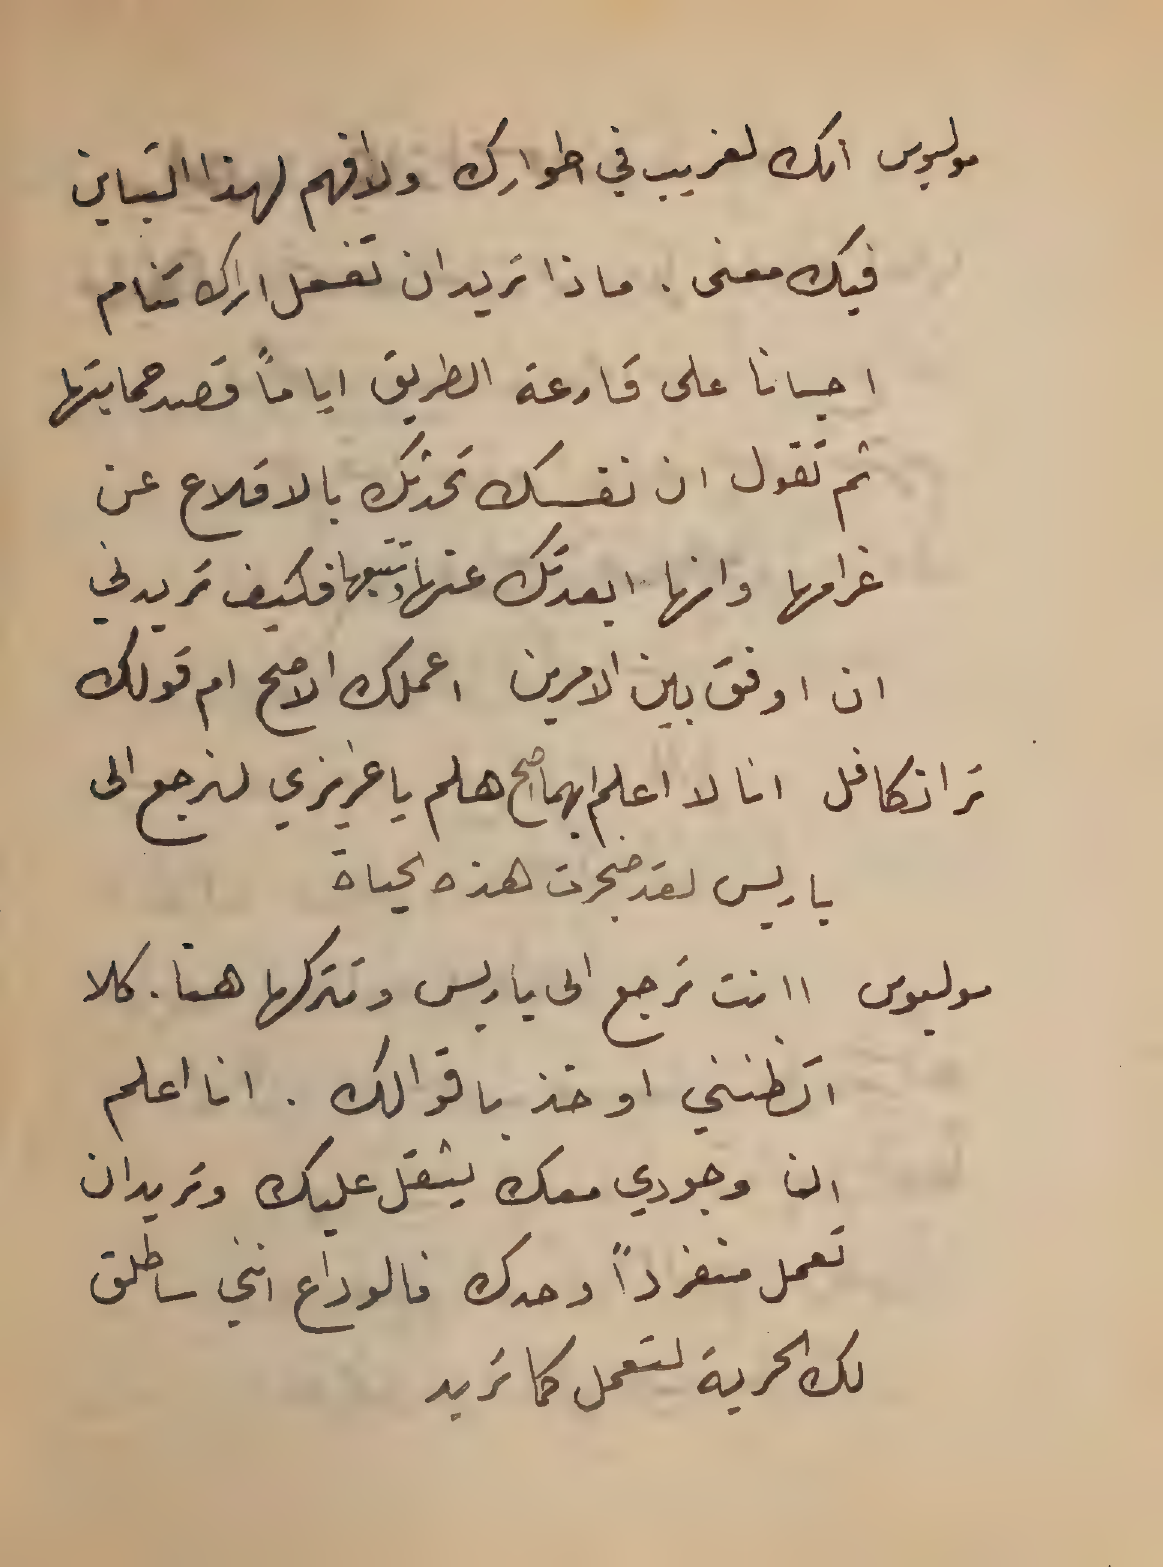 موليوس انك لغريب في اطوارك ولا افهم لهذا التباين
فيك معنى . ماذا تريد ان تفعل اراك تنام
احيانا على قارعة الطريق اياماً قصد حمايتها
ثم تقول ان نفسك تحدثك بالاقلاع عن
غرامها وانها ابعدتك عنها وتتبعها فكيف تريدني
ان اوفق بين الامرين اعملك الاصح ام قولك
ترانكافل انا لا اعلم ايهما اصح هلم يا عزيزي لنرجع الى
باريس لقد ضجرت هذه الحياة
موليوس اانت ترجع الى باريس وتتركها هنا . كلا
اتظنني اوخذ باقوالك . انا اعلم
ان وجودي معك يثقل عليك وتريد ان
تعمل منفرداً وحدك فالوداع انني ساطلق
لك الحرية لتعمل كما تريد